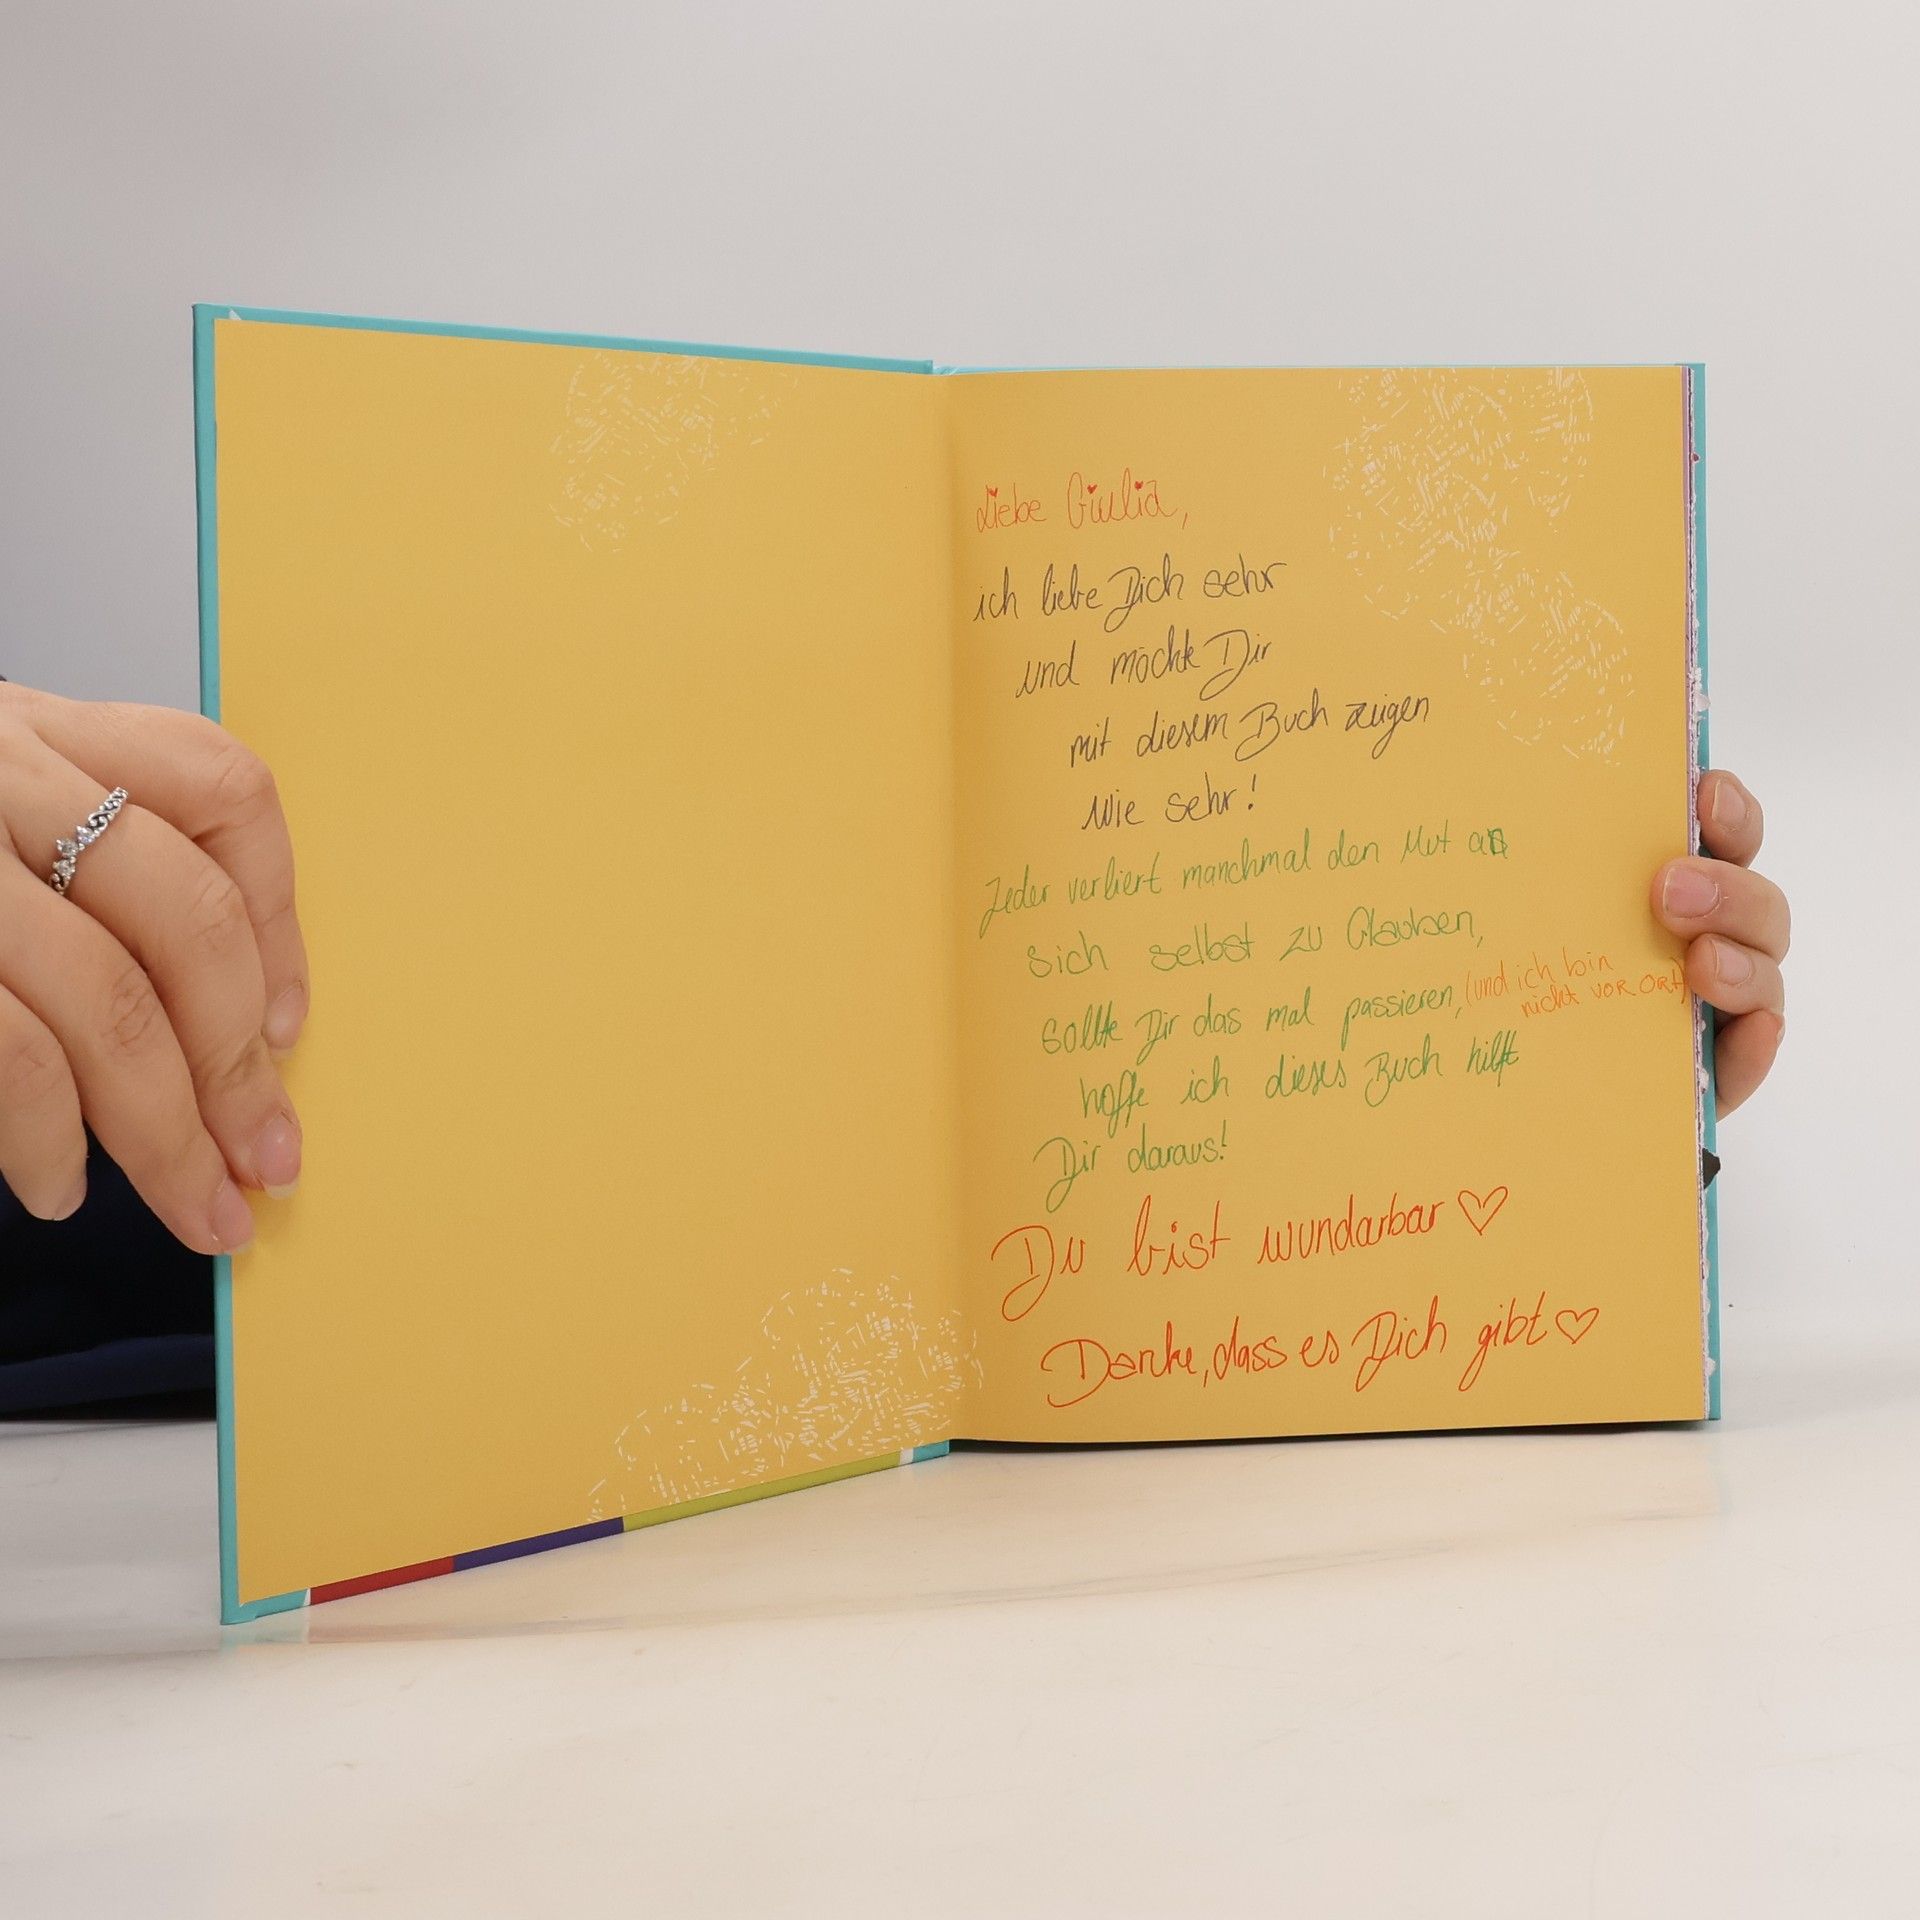 Liebe Giulia,
ich liebe Dich sehr
und möchte Dir
mit diesem Buch zeigen
wie sehr!
Jeder verliert manchmal den Mut an
sich selbst zu Glauben,
sollte Dir das mal passieren, (und ich bin
nicht vor Ort)
hoffe ich dieses Buch hilft
Dir daraus!
Du bist wundarbar ♡
Danke, dass es Dich gibt ♡